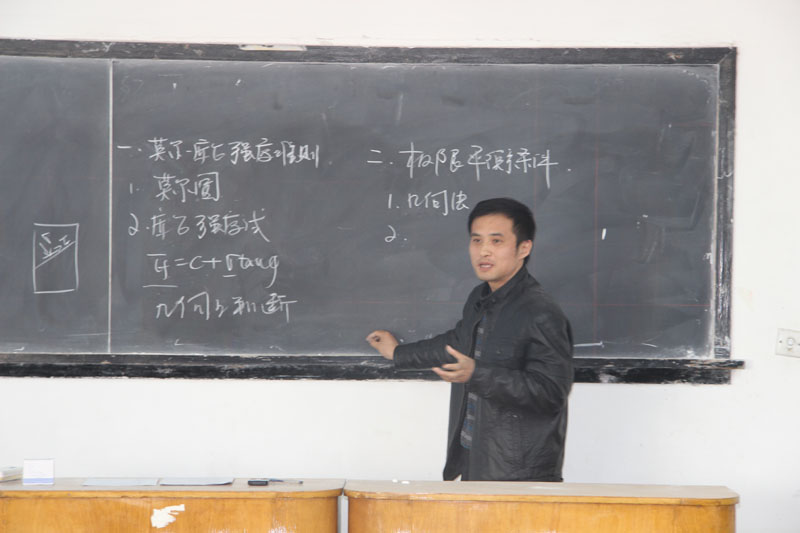 一. 莫尔-库仑强度准则
1. 莫尔圆
2. 库仑强度公式
τf = c + σ tanφ
几何上判断
二. 极限平衡条件.
1. 几何法
2.